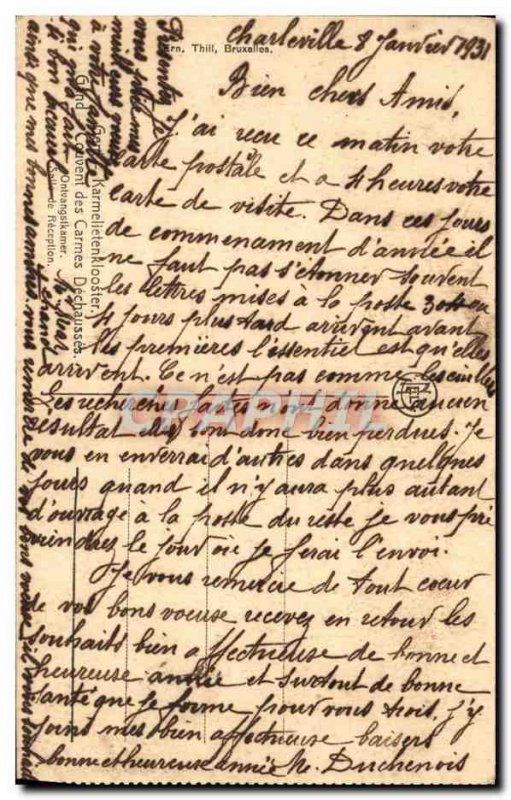 Charleville 8 Janvier 1931
Ern. Thill, Bruxelles.
Bien chers Amis,
J'ai recu ce matin votre
carte postale et a 4 heures votre
carte de visite. Dans ces jours
de commenament d'année il
ne faut pas s'etonner souvent
les lettres mises à la poste 3 ou
4 jours plus tard arrivent avant
les premières l'essentiel est qu'elles
arrivent. Ce n'est pas comme les
Les recherches faites n'ont donné aucun
résultat elles sont donc bien perdues. Je
vous en enverrai d'autres dans quelques
jours quand il n'y aura plus autant
d'ouvrage a la poste du reste je vous
le jour ou je ferai l'envoi.
Je vous remercie de tout coeur
de vos bons voeuse recevez en retour les
souhaits bien affectueuse de bonne et
heureuse année et surtout de bonne
santé que je forme pour vous trois, j'y
joins mes bien affectueuse baisers
bonne et heureuse année M. Duchenois
Presentez je
vous prie mes
meilleurs
à votre famille
qui
ainsi que mes bonnes amitiés
Gent Karmelietenklooster.
Gand Couvent des Carmes Déchaussés.
Ontvangstkamer.
Salle de Réception.
CPAPHIL